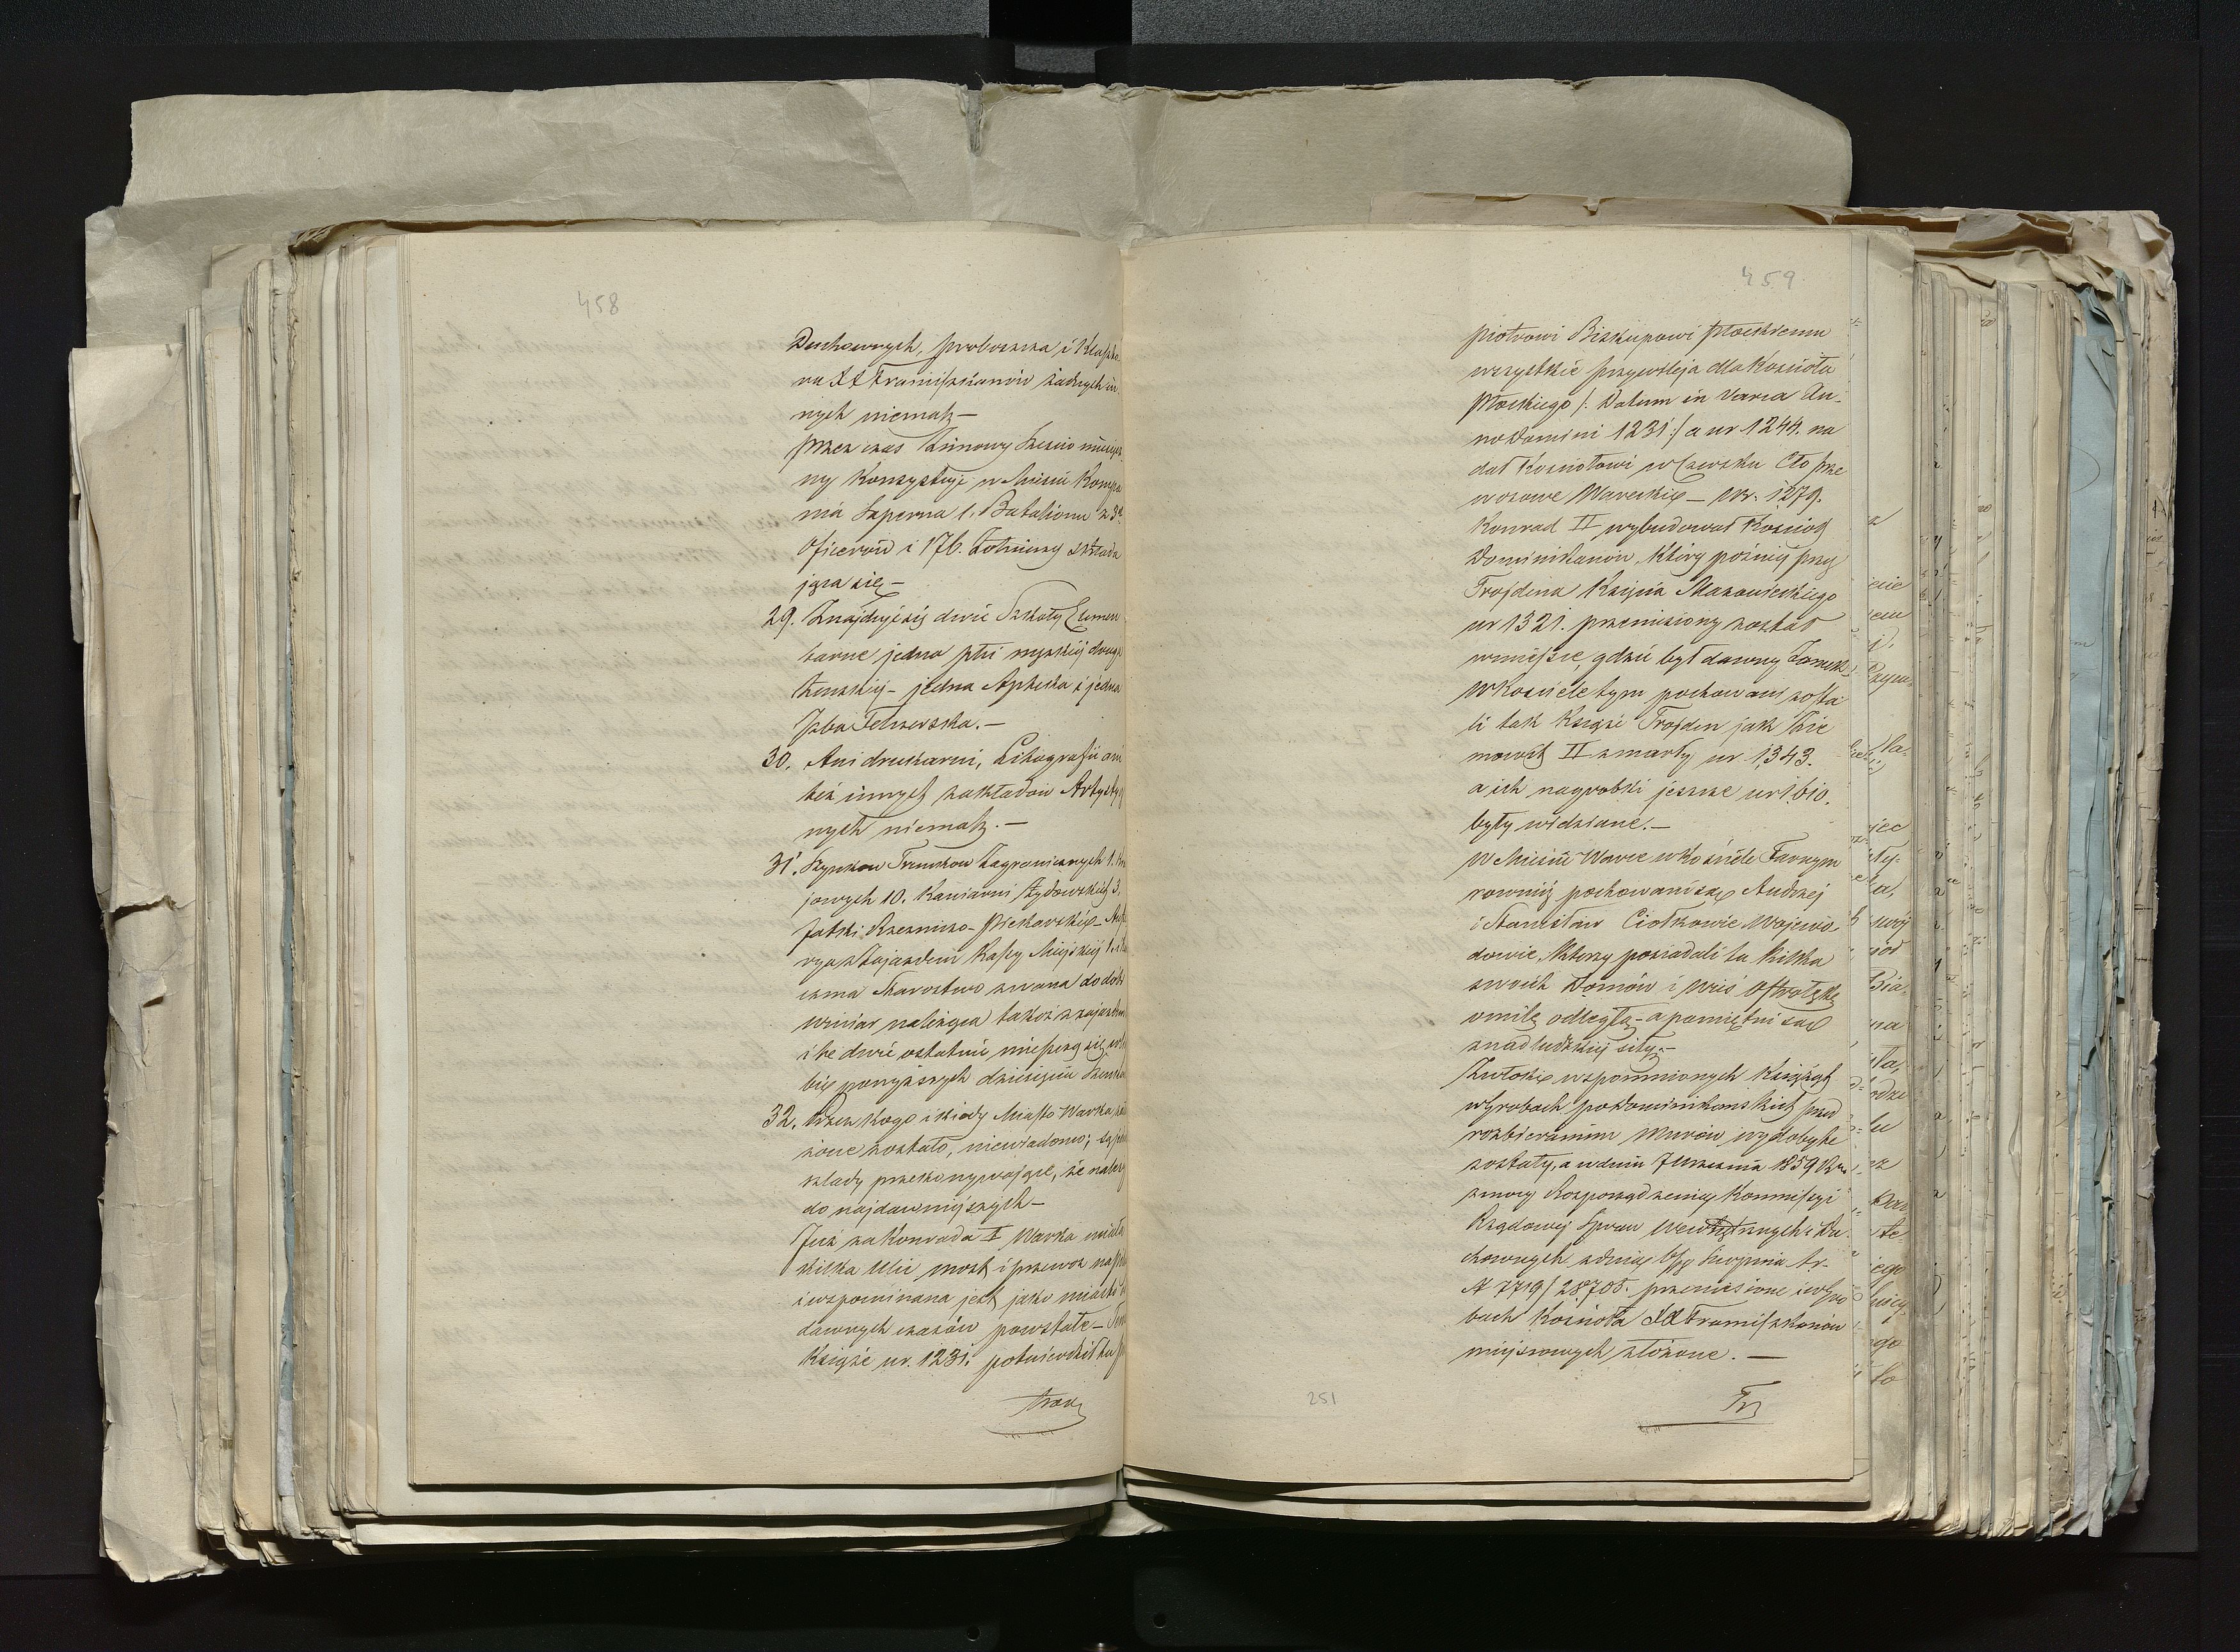 458
Duchownych, proboszcza i Klaszto
ru XX Franciszkanów żadnych in
nych niemasz—
przez czas Zimowy sześcio miesięcz
ny Konsystuje w Mieście Kompa
nia Saperna 1. Batalionu z 3ch
Oficerów i 176. Żołnierzy składa
jąca się—
29. Znajduje się dwie Szkoły Elemen
tarne jedna płci męzkiej druga
żenskiej— jedna Apteka i jedna
Izba Felczerska.—
30. Ani drukarni, Litografii ani
też innych zakładów Artysty
nych niemasz.—
31. Szynkow Trunkow Zagranicznych 1. kra
jowych 10. Kawiarni Żydowskich 3.
Jatki Rzeznicko-Piekarskie—
z Zajazdem Kassy Miejskiej 1.
czma Starostwo zwana do dobr
Winiar należąca także z zajazdem
i te dwie ostatnie mieszczą się w
bie powyższych dziesięciu
32. Przez kogo i kiedy Miasto Warka
żone zostało, niewiadomo; są
ślady przekonywające, że należy
do najdawniejszych—
Już za Konrada I Warka miała
kilka Ulic most i przewoz na
i wspominana jest jako miasto z
dawnych czasów powstałe— Ten
Książe w r. 1231. potwierdził tu
459
piotrowi Biskupowi płockiemu
wszystkie przywileja dla Kościoła
Płockiego /: Datum in Varca An-
no Domini 1231 :/ a w r 1244. na
dał Kościołowi w Czersku Cło prze
wozowe Wareckie— W r. 1279.
Konrad II wybudował Kościoł
Dominikanów, który pożniej przez
Trojdena Księcia Mazowieckiego
w r 1321. przeniesiony został
w miejsce, gdzie był dawny Zamek
W Kościele tym pochowani zosta
li tak Książe Trojden jak Zie
mowit II zmarły w r 1343.
a ich nagrobki jeszcze w r 1610.
były widziane.—
W Mieście Warce w kościele Farnym
rownież pochowani są Andrzej
i Stanisław Ciołkowie Wojewo
dowie, którzy posiadali tu kilka
swoich Domów i Wieś Ostrołękę
o milę odległą— a pamiętni są
z nadludzkiej siły.—
Zwłoki wspomnionych Książąt
w Grobach podominikanskich przed
rozbieraniem Murów wydobyte
zostały, a w dniu 7 Września 1859 r
z mocy Rozporządzenia Kommissyi
Rządowej Spraw Wewnętrznych i Du
chownych z dnia Sierpnia t r.
N 7719/28705. przeniesione i w Gro
bach Kościoła XX Franciszkanów
miejscowych złożone.—
251